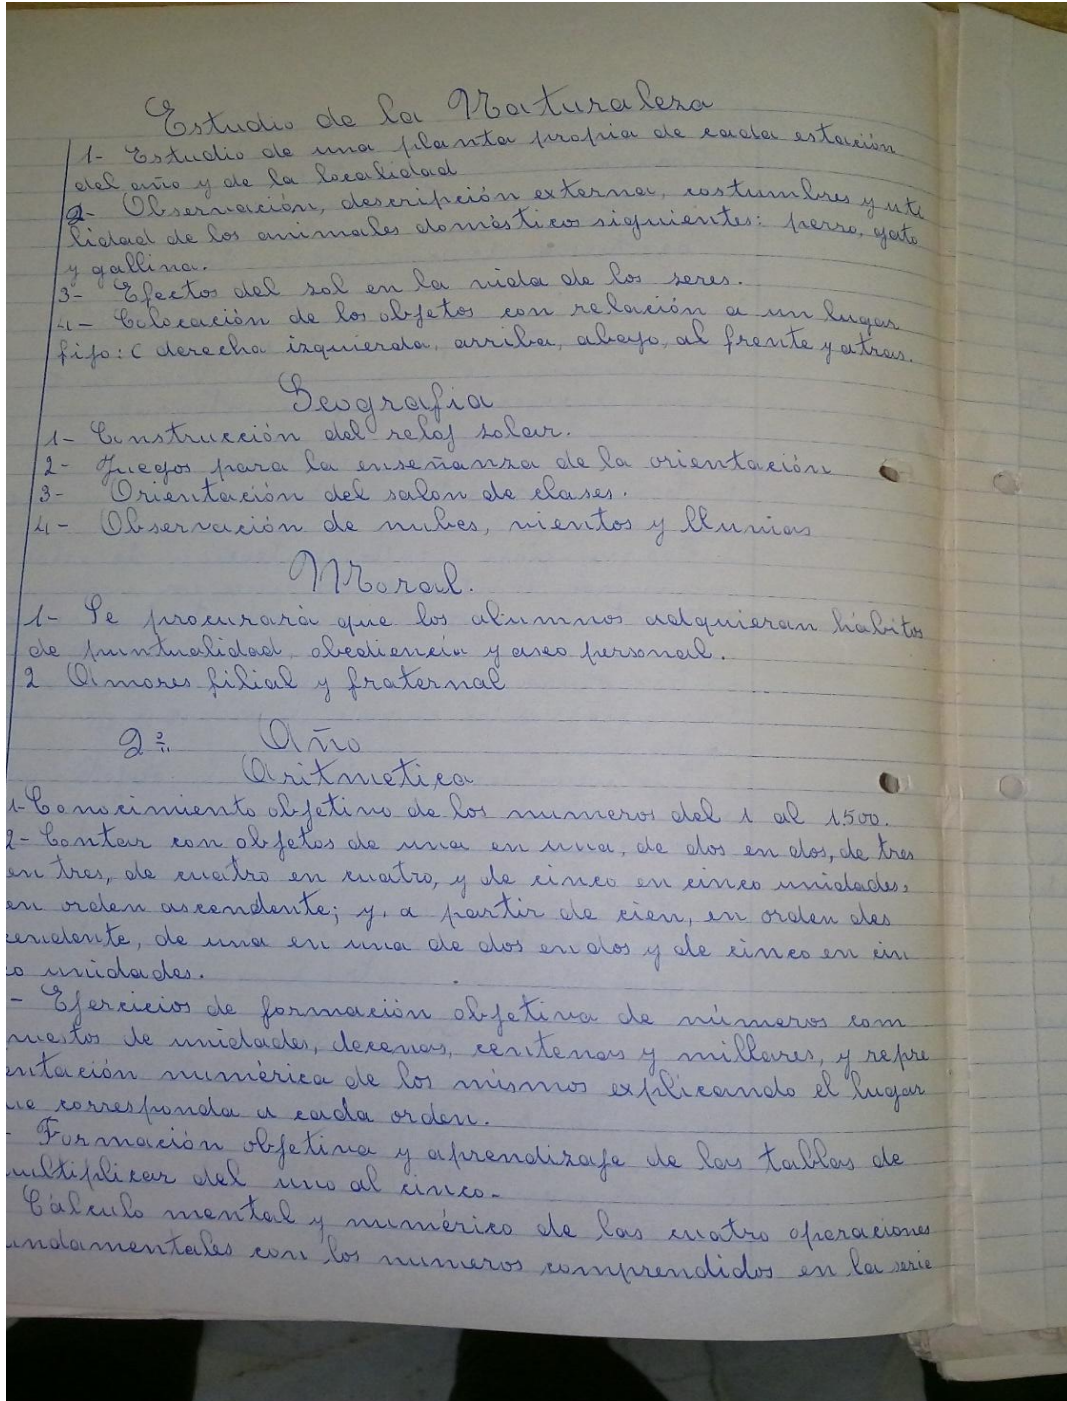 Estudio de la Naturaleza
1- Estudio de una planta propia de cada estación
del año y de la localidad
2- Observación, descripción externa, costumbres y uti
lidad de los animales domésticos siguientes: perro, gato
y gallina.
3- Efectos del sol en la vida de los seres.
4- Colocación de los objetos con relación a un lugar
fijo: ( derecha izquierda, arriba, abajo, al frente y atras.
Geografia
1- Construcción del reloj solar.
2- Juegos para la enseñanza de la orientación
3- Orientación del salon de clases.
4- Observación de nubes, vientos y lluvias
Moral.
1- Se procurará que los alumnos adquieran hábitos
de puntualidad, obediencia y aseo personal.
2 Amores filial y fraternal
2º Año
Aritmetica
1- Conocimiento objetivo de los numeros del 1 al 1500.
2- Contar con objetos de una en una, de dos en dos, de tres
en tres, de cuatro en cuatro, y de cinco en cinco unidades,
en orden ascendente; y, a partir de cien, en orden des
cendente, de una en una de dos en dos y de cinco en cin
co unidades.
- Ejercicios de formación objetiva de números com
puestos de unidades, decenas, centenas y millares, y repre
entación numérica de los mismos explicando el lugar
ue corresponda a cada orden.
- Formación objetiva y aprendizaje de las tablas de
ultiplicar del uno al cinco.
Cálculo mental y numérico de las cuatro operaciones
undamentales con los numeros comprendidos en la serie